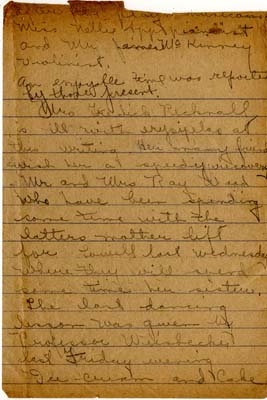 Miss Nellie App pianist
and Mr. James McKinney
violinist.
An enjoyable time was reported
by those present.
Mrs. Fredrick
is ill with erysipelas at
this writing. Her many friends
wish her a speedy recovery
Mr. and Mrs. Ray Wood
who have been spending
some time with the
latters mother left
for Lowell last Wednesday
where they will spend
some time her sister.
The last dancing
lesson was given by
Professor
last Friday evening
Ice-cream and Cake